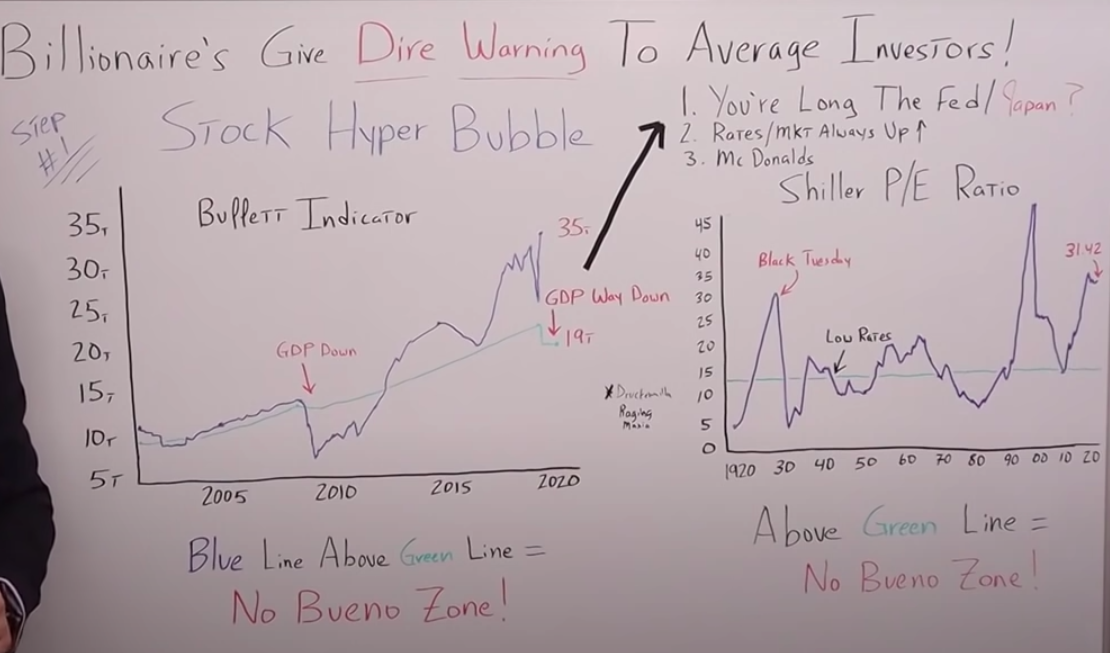 Billionaire's Give Dire Warning To Average Investors!
Step
#1
Stock Hyper Bubble
1. You're Long The Fed/Japan?
2. Rates/mkt Always Up ↑
3. McDonalds
Buffett Indicator
35T
30T
25T
20T
15T
10T
5T
35T
GDP Way Down
19T
GDP Down
2005
2010
2015
2020
Blue Line Above Green Line =
No Bueno Zone!
* 
Raging
Mania
Shiller P/E Ratio
45
40
35
30
25
20
15
10
5
0
Black Tuesday
Low Rates
31.42
1920 30 40 50 60 70 80 90 00 10 20
Above Green Line =
No Bueno Zone!